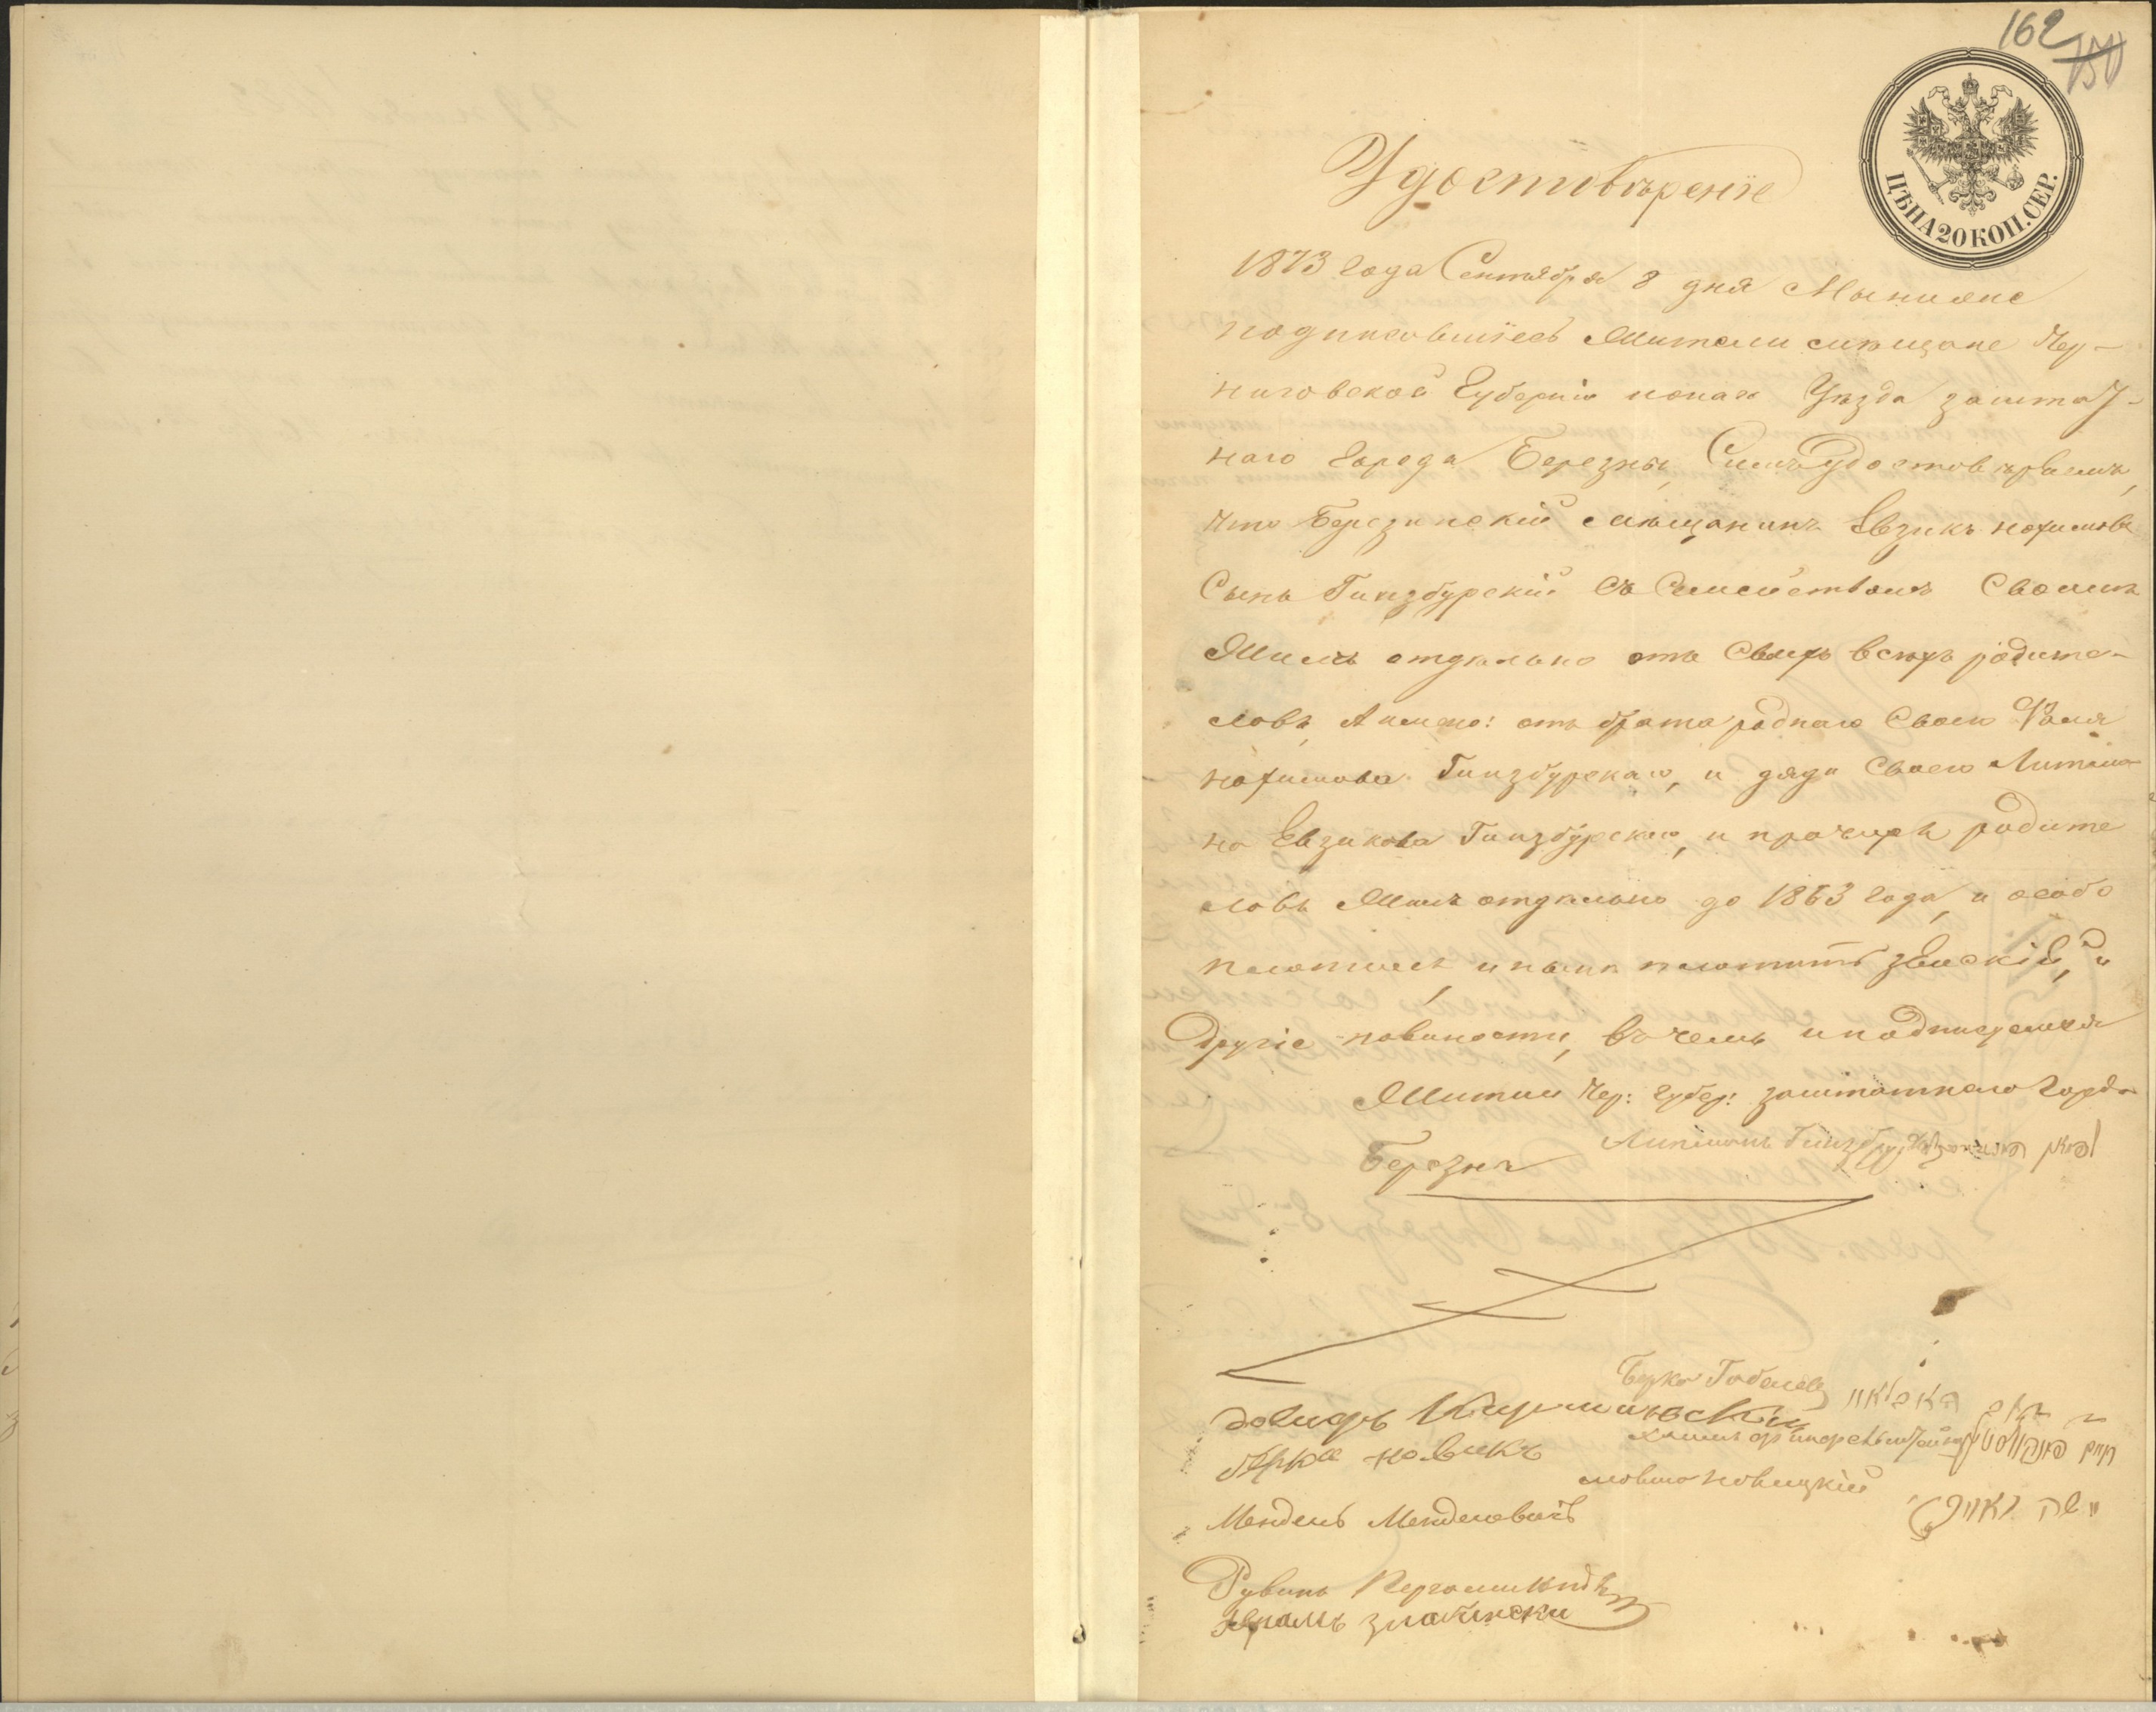 162
150
ЦѢНА 20 КОП. СЕР.
Удостовѣренїе
1873 года Сентября 8 дня Мы ниже
подписавшїесь Жители мѣщане Чер-
ниговской Губернїи Уѣзда заштат-
наго города Березны, Симъ Удостовѣряемъ,
что Березинскїй мѣщанинъ Евзикъ нохимовъ
Сынъ Гинзбурскїй Съ Семействомъ Своимъ
Жилъ отдѣльно отъ Своихъ всѣхъ родите-
ловъ, А имено: отъ брата роднаго Своего
нохимова Гинзбурскаго, и дяди Своего Липмо-
на Евзикова Гинзбурскаго, и прочихъ родите
ловъ Жилъ отдѣльно до 1863 года, и особо
плотилъ, и нынѣ плотитъ земскїе, и
Другїе повиности, въ чемъ и подписуемся
Жители Чер: Губер: заштатнаго Города
Березны Липманъ
Берко
Довидъ
Берка новикъ
мовша новицкїй
Мендель Менделевичъ
Рувинъ